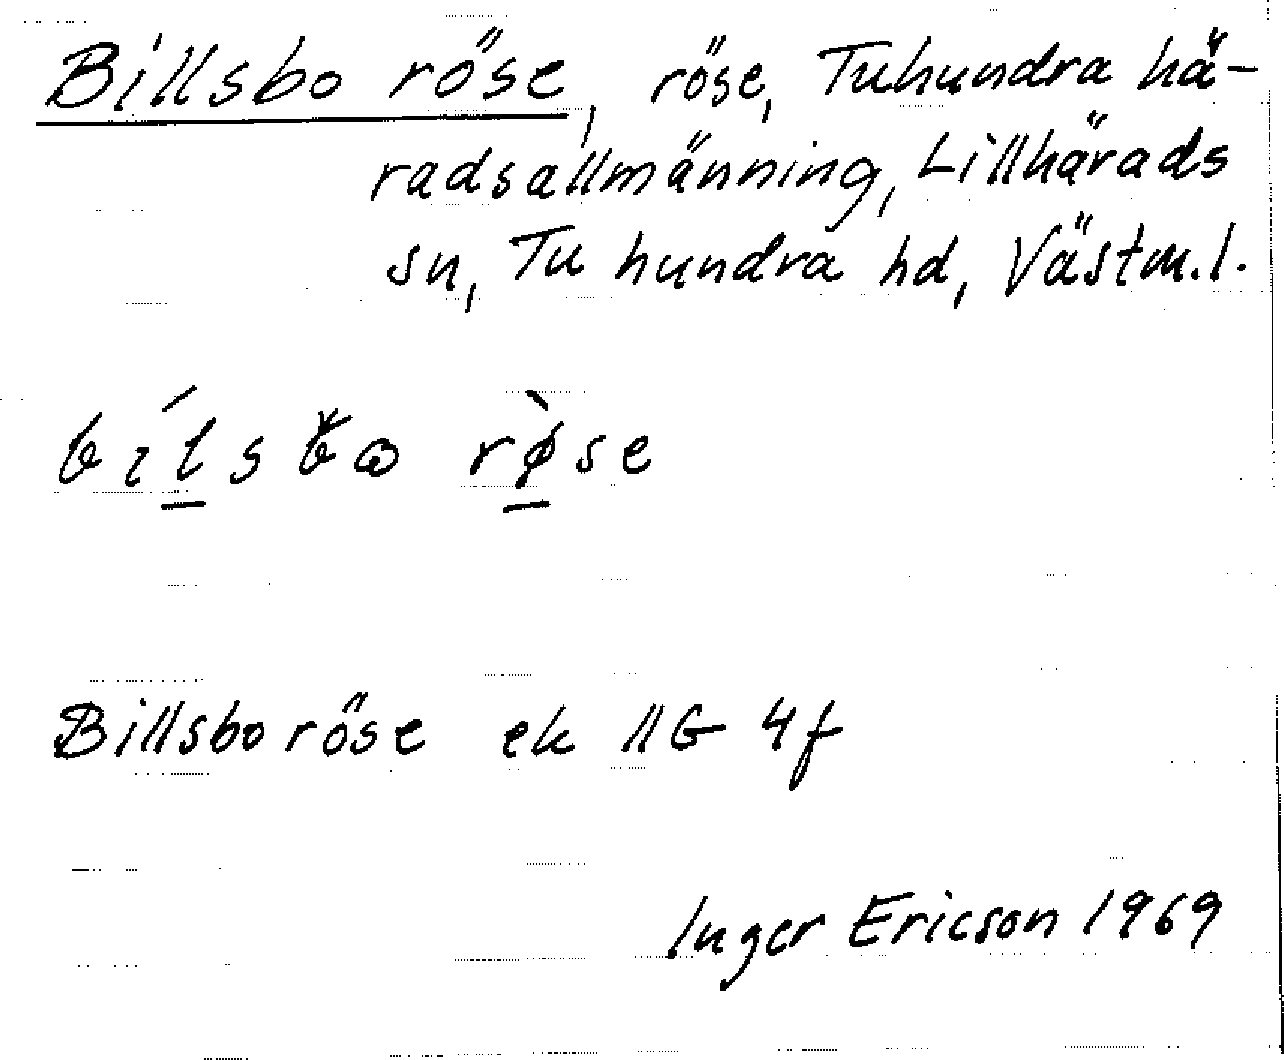 Billsbo röse, röse, Tuhundra hä-
radsallmänning, Lillhärads
sn, Tu hundra hd, Västm.l.
bíl̲sbɷ rø̲̀se
Billsbo röse ek 11G 4f
Inger Ericson 1969